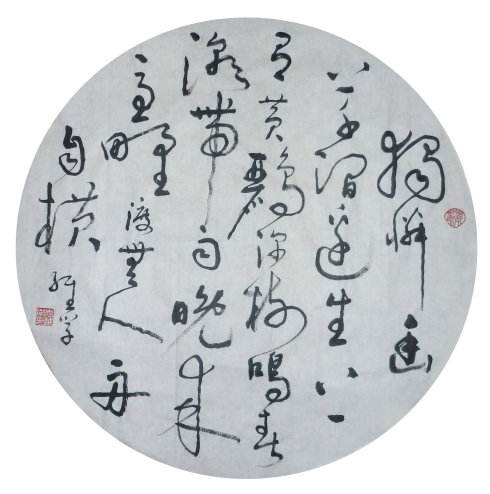 獨憐幽
草澗邊生上
有黃鸝深樹鳴春
潮帶雨晚來
急野渡無人舟
自橫